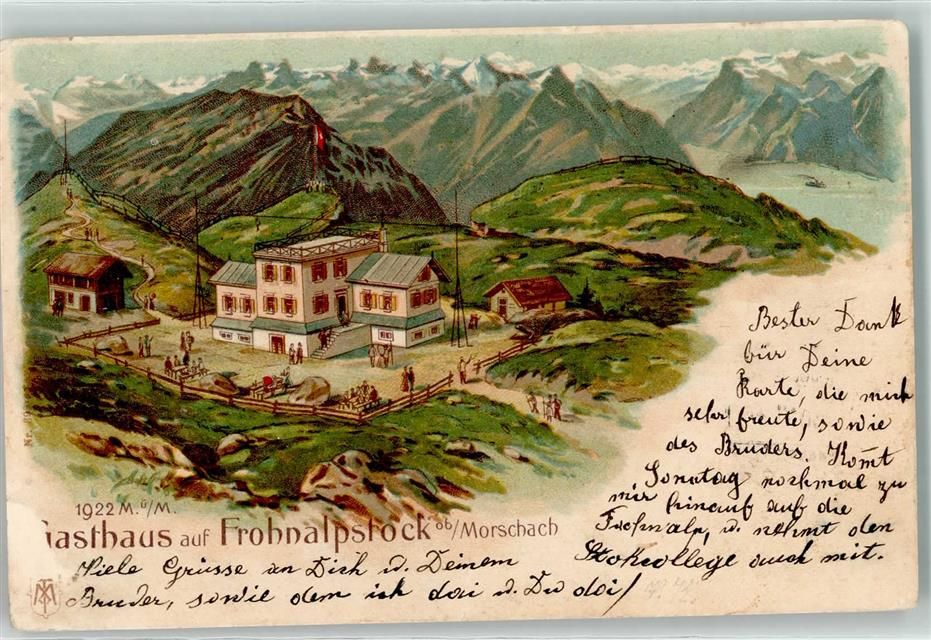 Bester Dank
für Deine
Karte, die mich
sehr freute, sowie
des Bruders. Komt
Sonntag nochmal zu
mir hinauf auf die
Frohnalp, u. nehmt den
Stokcollege auch mit.
1922 M. ü/M.
Gasthaus auf Frohnalpstock ob/Morschach
Viele Grüsse an Dich u. Deinem
Bruder, sowie dem ich doi u. Du doi/